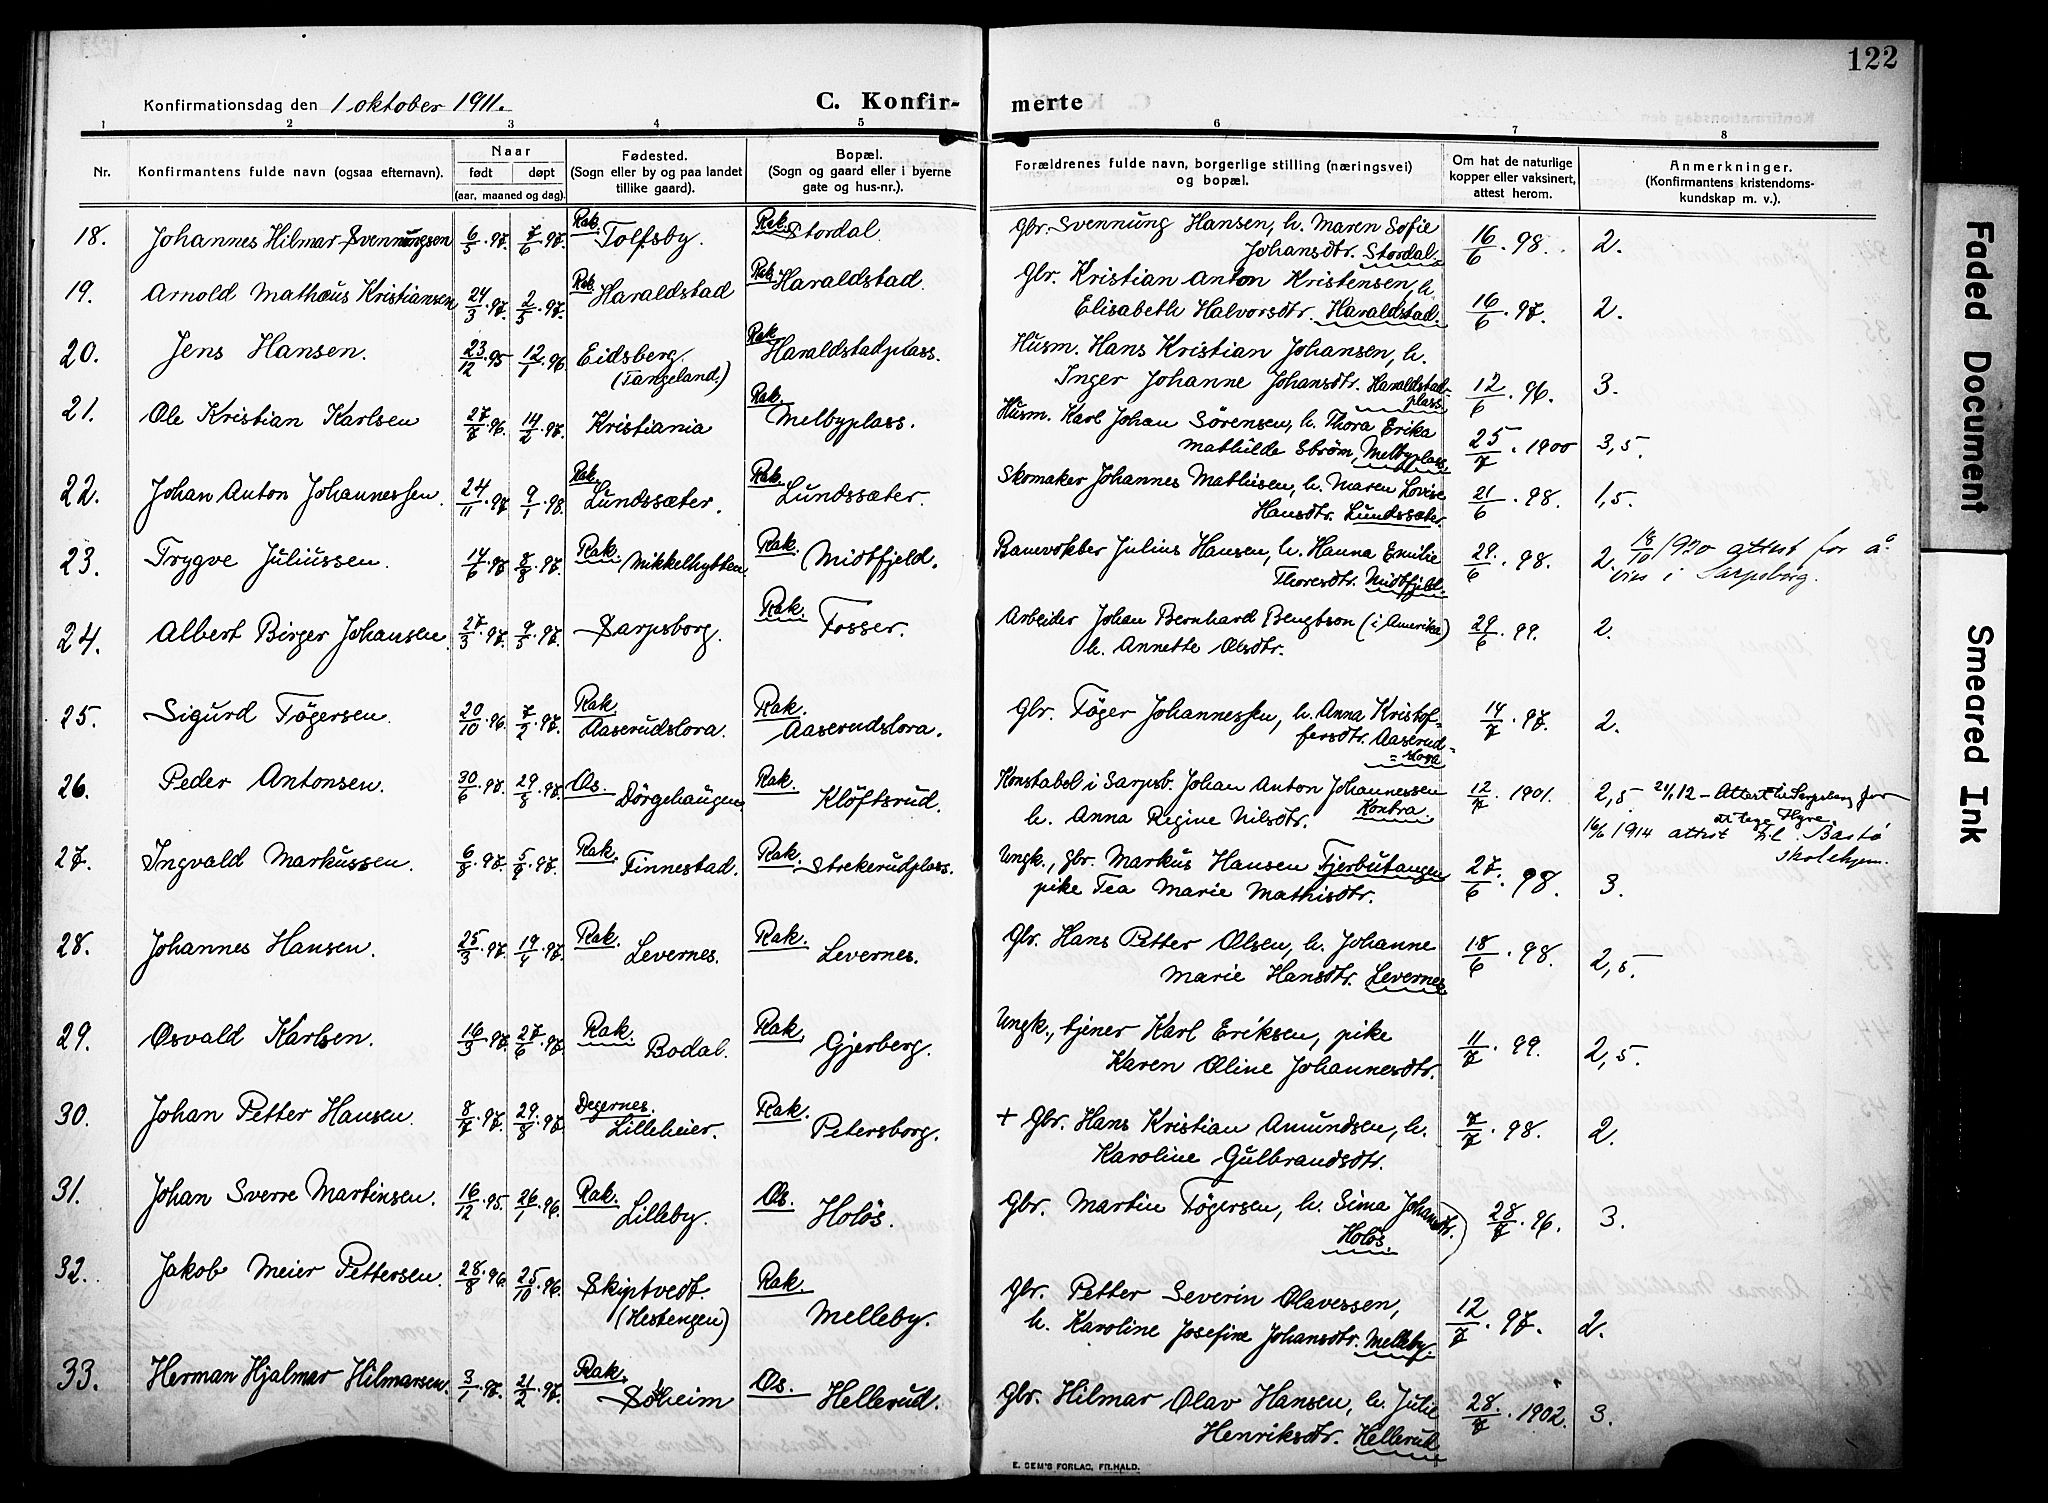 122
Konfirmationsdag den 1 oktober 1911.
C. Konfir- merte
1 2 3 4 5 6 7 8
Nr.
Konfirmantens fulde navn (ogsaa efternavn).
Naar
født døpt
(aar, maaned og dag).
Fødested.
(Sogn eller by og paa landet
tillike gaard).
Bopæl.
(Sogn og gaard eller i byerne
gate og hus-nr.).
Forældrenes fulde navn, borgerlige stilling (næringsvei)
og bopæl.
Om hat de naturlige
kopper eller vaksinert,
attest herom.
Anmerkninger.
(Konfirmantens kristendoms-
kundskap m. v.).
18. Johannes Hilmar Svennungsen 6/5.97. 7/6.97. Rak. Tolfsby. Rak. Stordal. Gbr. Svennung Hansen, h. Maren Sofie
Johansdtr. Stordal. 16/6.98. 2.
19. Arnold Mathæus Kristiansen 24/3.97. 2/5.97. Rak. Haraldstad Rak. Haraldstad. Gbr. Kristian Anton Kristensen, h.
Elisabeth Halvorsdtr. Haraldstad. 16/6.97. 2.
20. Jens Hansen. 23/12.95 12/1.96 Eidsberg. Rak. Haraldstadplass. Husm. Hans Kristian Johansen, h.
(Tangeland.) Inger Johanne Johansdtr. Haraldstad-
plass. 12/6.96. 3.
21. Ole Kristian Karlsen 27/7.96. 14/2.97. Kristiania Rak. Melbyplass. Husm. Karl Johan Sørensen, h. Thora Erika
Mathilde Strøm, Melbyplass. 25/7.1900 3,5.
22. Johan Anton Johannessen. 24/11.97 9/1.98. Rak. Lundssæter. Rak. Lundssæter. Skomaker Johannes Mathisen, h. Maren Lovise
Hansdtr. Lundssæter. 21/6.98. 1,5.
23. Trygve Juliussen. 14/6.97 8/8.97. Rak. Mikkelhytten. Rak. Midtfjeld. Banevokter Julius Hansen, h. Hanna Emilie
Thoresdtr. Midtfjeld. 29/6.98. 2. 18/10 1920 attest for å
vies i Sarpsborg.
24. Albert Birger Johansen 27/3.97. 9/5.97. Sarpsborg. Rak. Fosser. Arbeider Johan Bernhard Bengtson (i Amerika)
h. Annette Olsdtr. 29/6.99. 2.
25. Sigurd Tögersen. 20/10.96. 7/2.97. Rak. Aaserudslora. Rak. Aaserudslora. Gbr. Töger Johannessen, h. Anna Kristof-
fersdtr. Aaserud-
=slora 14/7.97. 2.
26. Peder Antonsen. 30/6.97. 29/8.97. Os. Dörgehaugen Rak. Klöftsrud. Konstabel i Sarpsb. Johan Anton Johannessen
h. Anna Regine Nilsdtr. Kontra. 12/7.1901. 2,5. 24/1 12 - Attest til Sarpsborg for
at tage Hyre.
16/6 1914 attest til Bastö
skolehjem.
27. Ingvald Markussen. 6/8.97. 5/9.97. Rak. Finnestad. Rak. Strekerudplass. Ungk., gbr. Markus Hansen Fjerbutangen
pike Tea Marie Mathisdtr. 27/6.98. 3.
28. Johannes Hansen. 25/3.97. 19/4.97. Rak. Levernes. Rak. Levernes. Gbr. Hans Petter Olsen, h. Johanne
Marie Hansdtr. Levernes. 18/6.98. 2,5.
29. Osvald Karlsen. 16/3.97. 27/6.97. Rak. Bodal. Rak. Gjerberg. Ungk., tjener Karl Eriksen, pike
Karen Oline Johannesdtr. 11/7.99. 2,5.
30. Johan Petter Hansen. 8/7.97. 29/8.97. Degernes. Lilleheier. Rak. Petersborg. + Gbr. Hans Kristian Amundsen, h.
Karoline Gulbrandsdtr. 7/7.98. 2.
31. Johan Sverre Martinsen. 16/12.95. 26/1.96. Rak. Lilleby. Os. Holös. Gbr. Martin Tögersen, h. Sima Johansdtr.
Holös. 28/7.96. 3.
32. Jakob Meier Pettersen. 28/8.96. 25/10.96. Skiptvedt. Rak. Melleby. Gbr. Petter Severin Olavessen,
(Hestengen) h. Karoline Josefine Johansdtr. Melleby. 12/7.97. 2.
33. Herman Hjalmar Hilmarsen. 3/1.97. 21/2.97. Rak. Solheim Os. Hellerud. Gbr. Hilmar Olav Hansen, h. Julie
Henriksdtr. Hellerud. 28/7.1902. 3.
E. SEM'S FORLAG, FR.HALD.
Faded Document
Smeared Ink